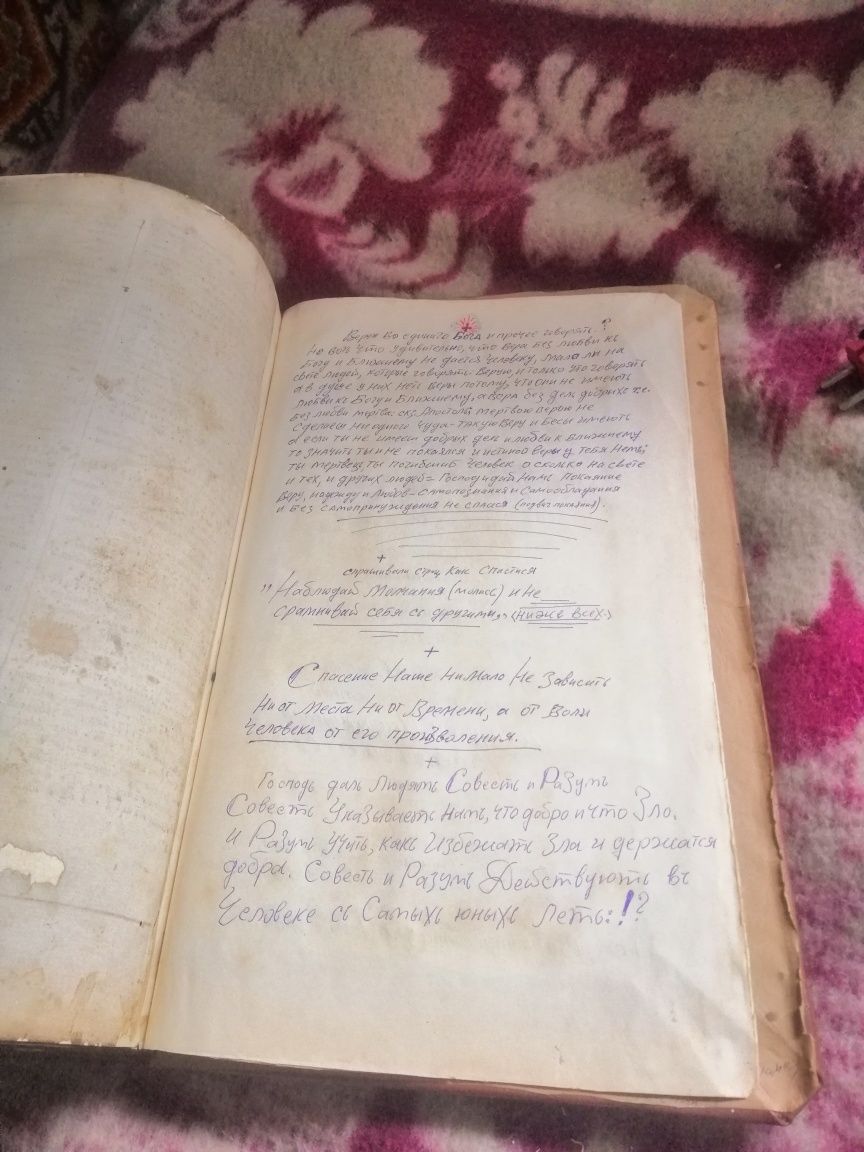 Верую во единаго Бога и прочее говорять. ?
Но вотъ что удивительно, что Вера без любви къ
Богу и Ближнему не дается человеку, мало ли на
свете людей, которые говорять: Верую, и только что говорять
а в душе у них нетъ Веры потому, что они не имеютъ
любви къ Богу и Ближнему, а вера без делъ добрыхъ т.е.
без любви мертва: Апостолъ, мертвою верою не
сделаеш ни одного чуда – такую Веру и бесы имеють
а если ты не имееш добрых делъ и любви к Ближнему
то значитъ ты и не покаялся и истиной веры у тебя Нетъ;
ты мертвецъ, ты погибший человек о сколько на свете
и тех, и других людей = Господи дай Намъ покаяние
Веру, надежду и Любов – самопознания и самообладания
и без самопринуждения не спасся (подвиг покаяния).
+
спрашивали Как спастися
,, Наблюдай молчания (молись) и не
сравнивай себя съ другими,, (ниже всех)
+
Спасение Наше Ни мало Не Зависитъ
Ни от места Ни от Времени, а от Воли
Человека от его произволения.
+
Господь далъ людямъ Совесть и Разумъ
Совесть Указываетъ Намъ, что добро и что Зло.
и Разумъ Учитъ, какъ избежать Зла и держатся
добра. Совесть и Разумъ Действуютъ въ
Человеке съ Самыхъ юныхъ летъ: !?